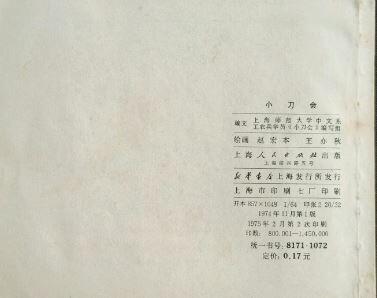 小刀会
编文 上海师范大学中文系
工农兵学员《小刀会》编写组
绘画 赵宏本 王亦秋
上海人民出版社出版
上海绍兴路五号
新华书店上海发行所发行
上海市印刷七厂印刷
开本 857×1048 1/64 印张 2 20/32
1974年11月第1版
1975年2月第2次印刷
印数:800,001—1,450,000
统一书号:8171·1072
定价:0.17元